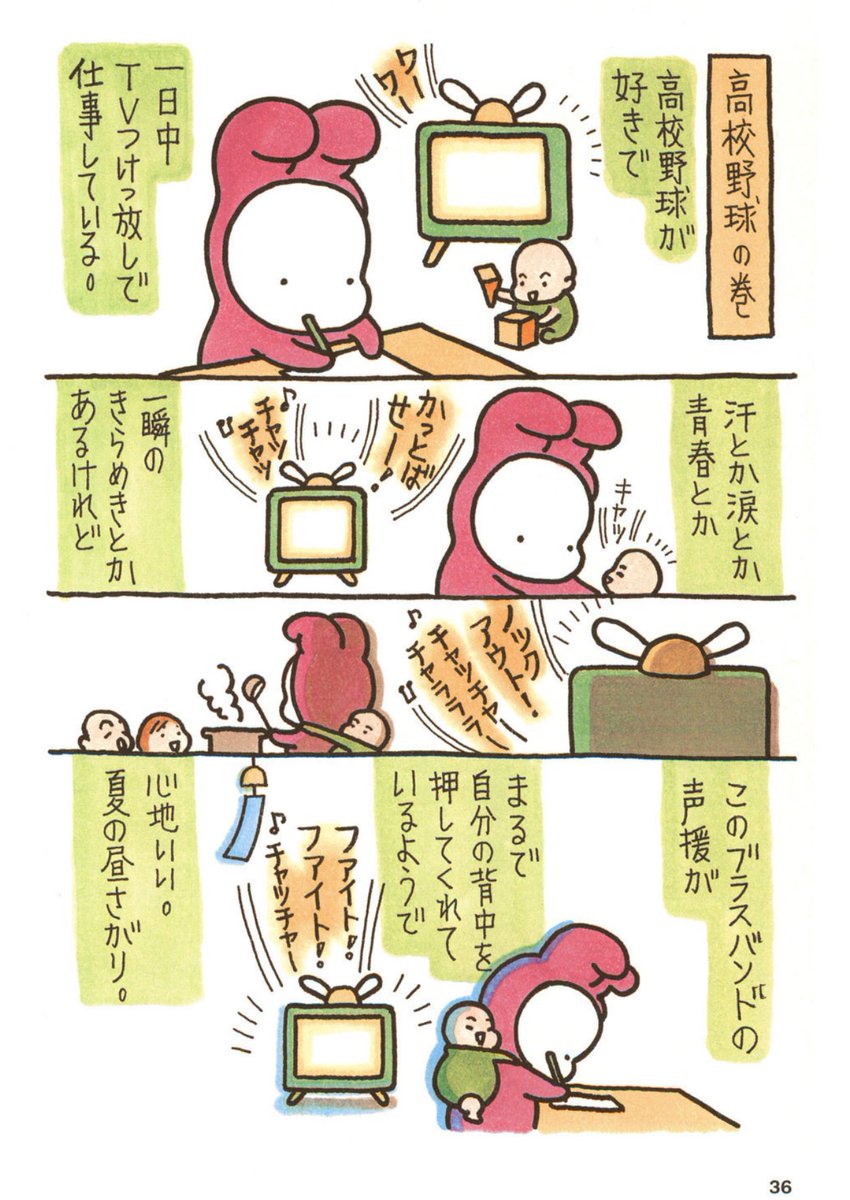 高校野球の巻
高校野球が
好きで
ワー
ワー
一日中
TVつけっ放しで
仕事している。
汗とか涙とか
青春とか
キャッ
かっとば
せー!
♪チャッ
チャッ♪
一瞬の
きらめきとか
あるけれど
ノック
アウト!
♪チャッチャー
チャラララ♪
このブラスバンドの
声援が
まるで
自分の背中を
押してくれて
いるようで
ファイト!
ファイト!
♪チャッチャー
心地いい。
夏の昼さがり。
36